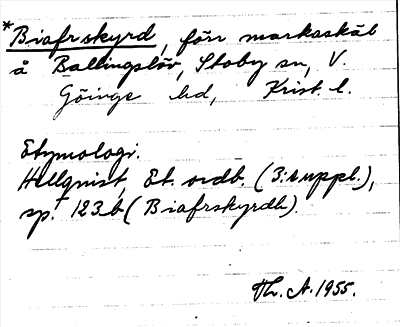 *Biafrskyrd, förr markaskäl
å Ballingslöv, Stoby sn, V.
Göinge hd, Krist. l.
Etymologi.
Hellquist, Et. ordb. (3:suppl.),
sp. 123b (Biafrskyrdh).
Th. A. 1955.